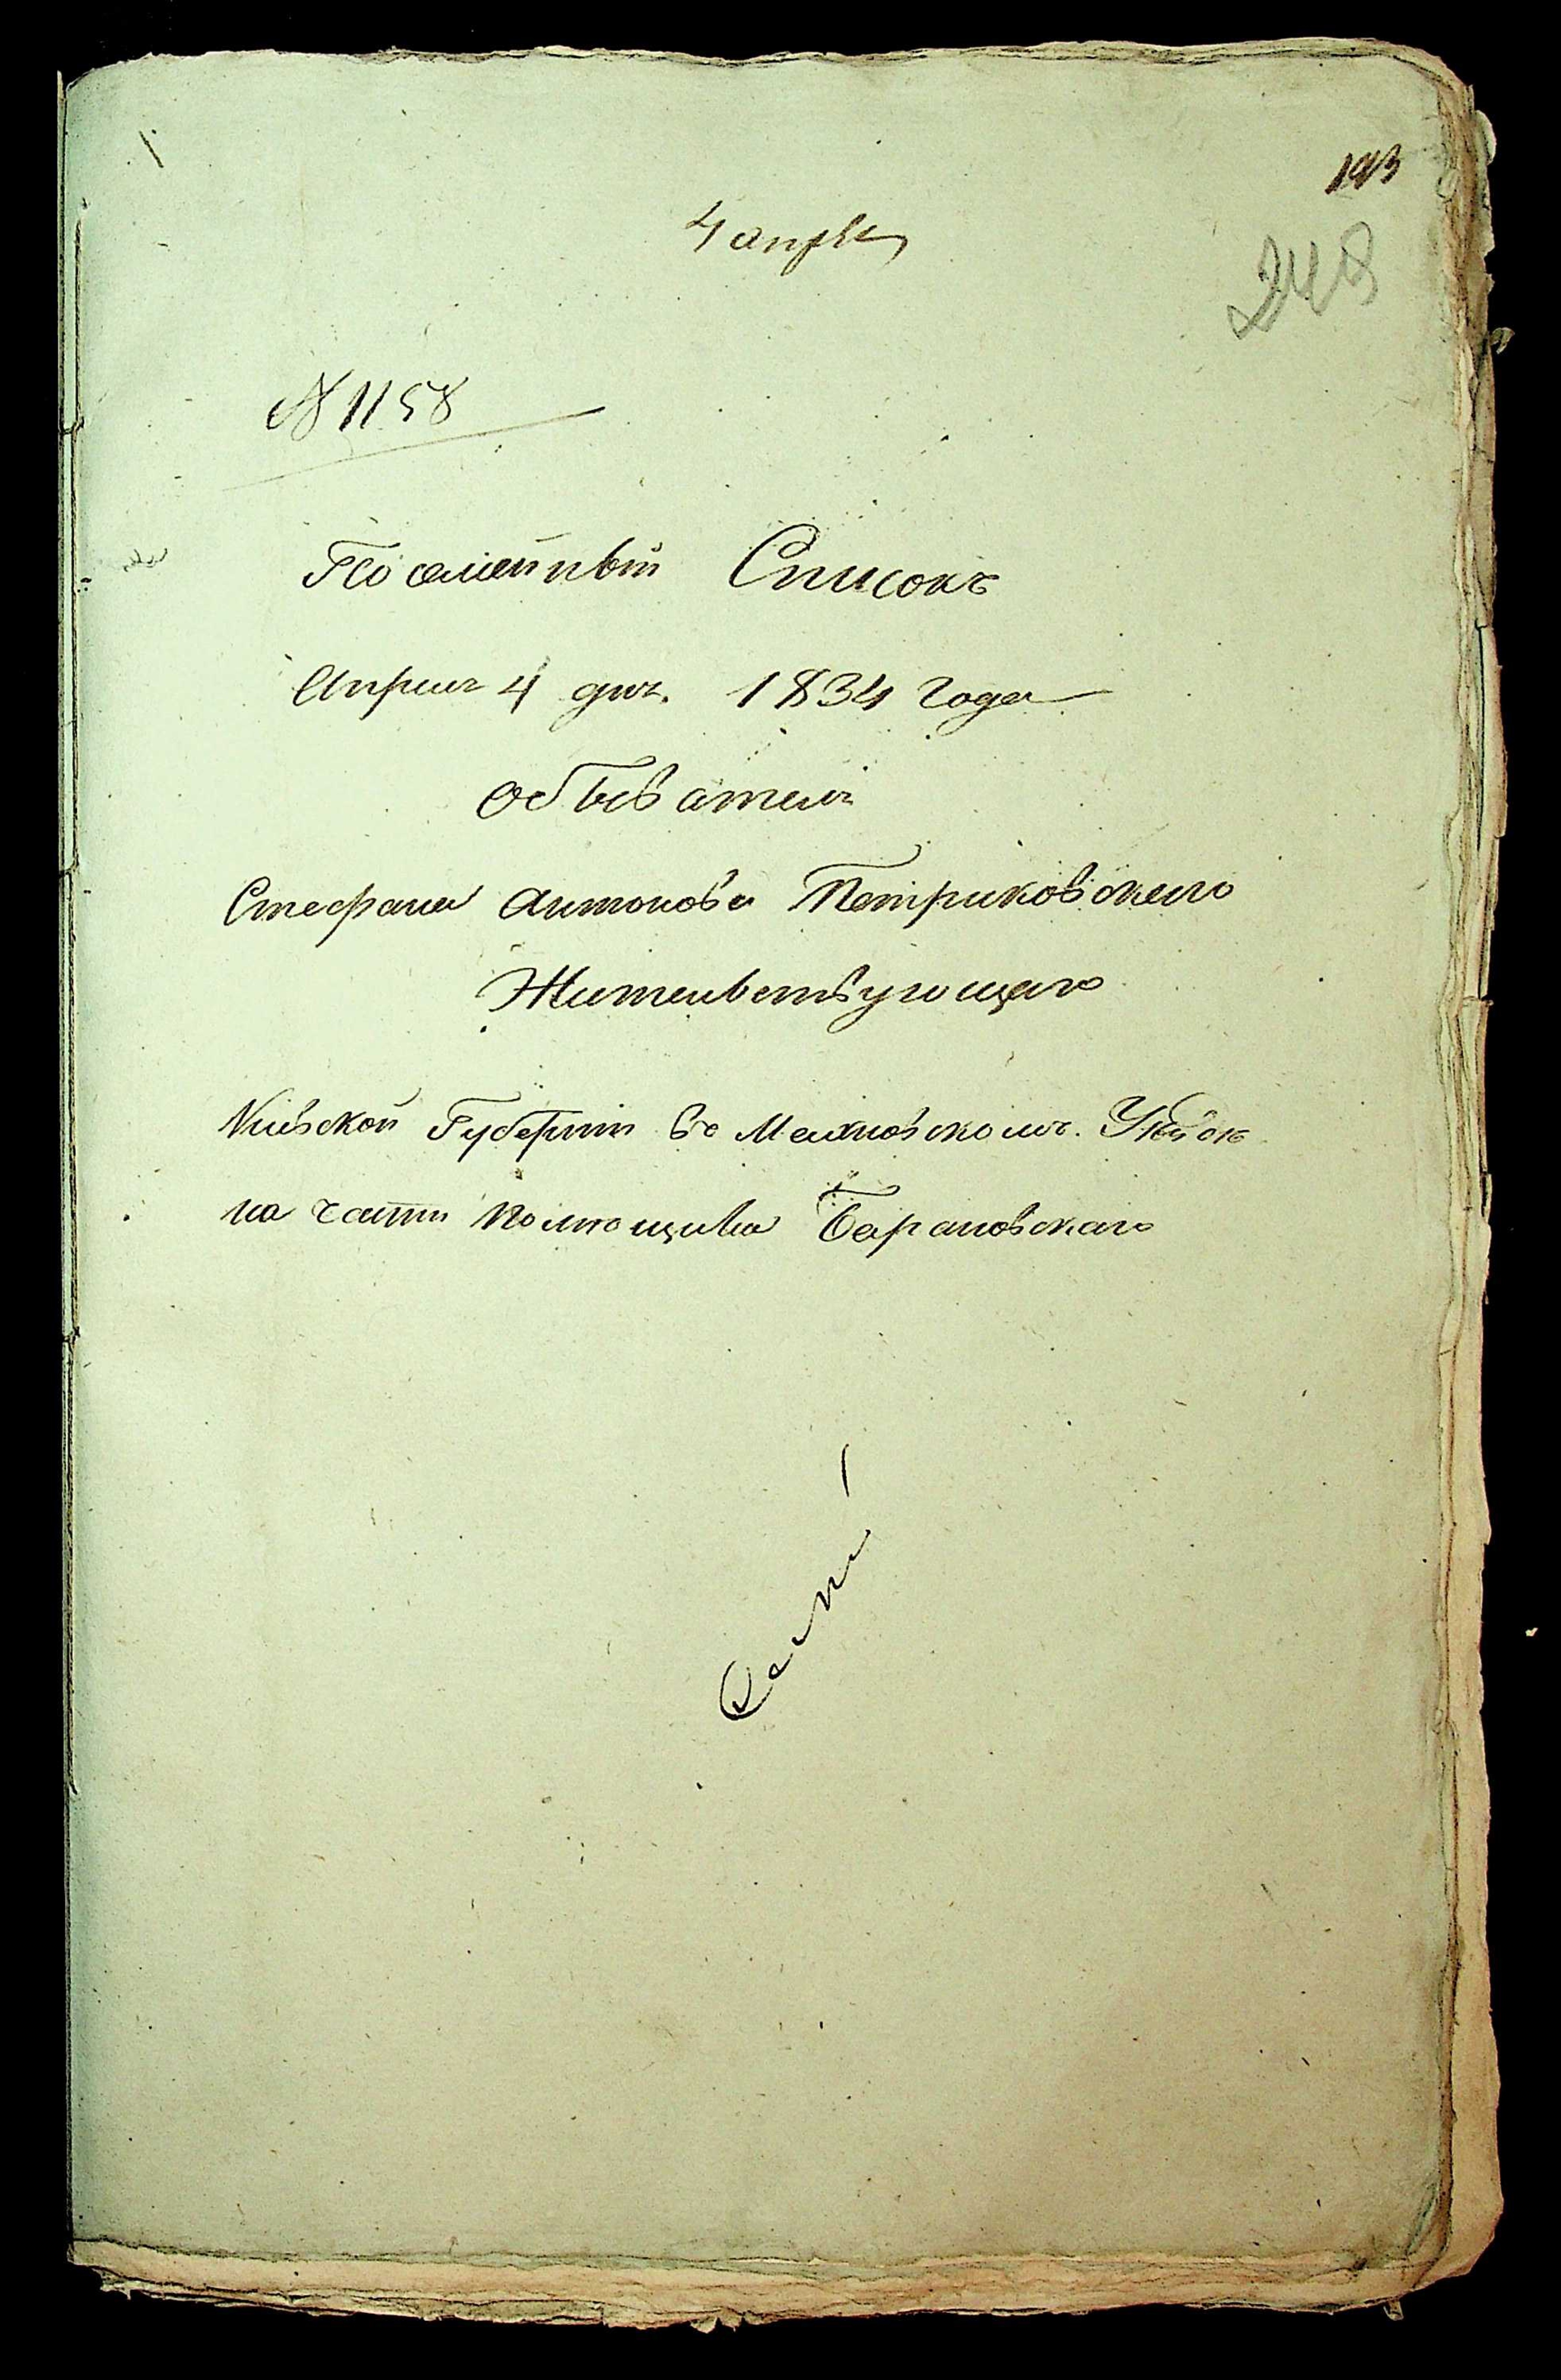 193
4 апреля
248
№ 1158
Посемейный Списокъ
Апреля 4 дня. 1834 Года
Обывателя
Стефана Антонова Петриковского
Жительствующаго
Киевской Губернiи въ Махновскомъ Уезде
на части Помещика Барановскаго